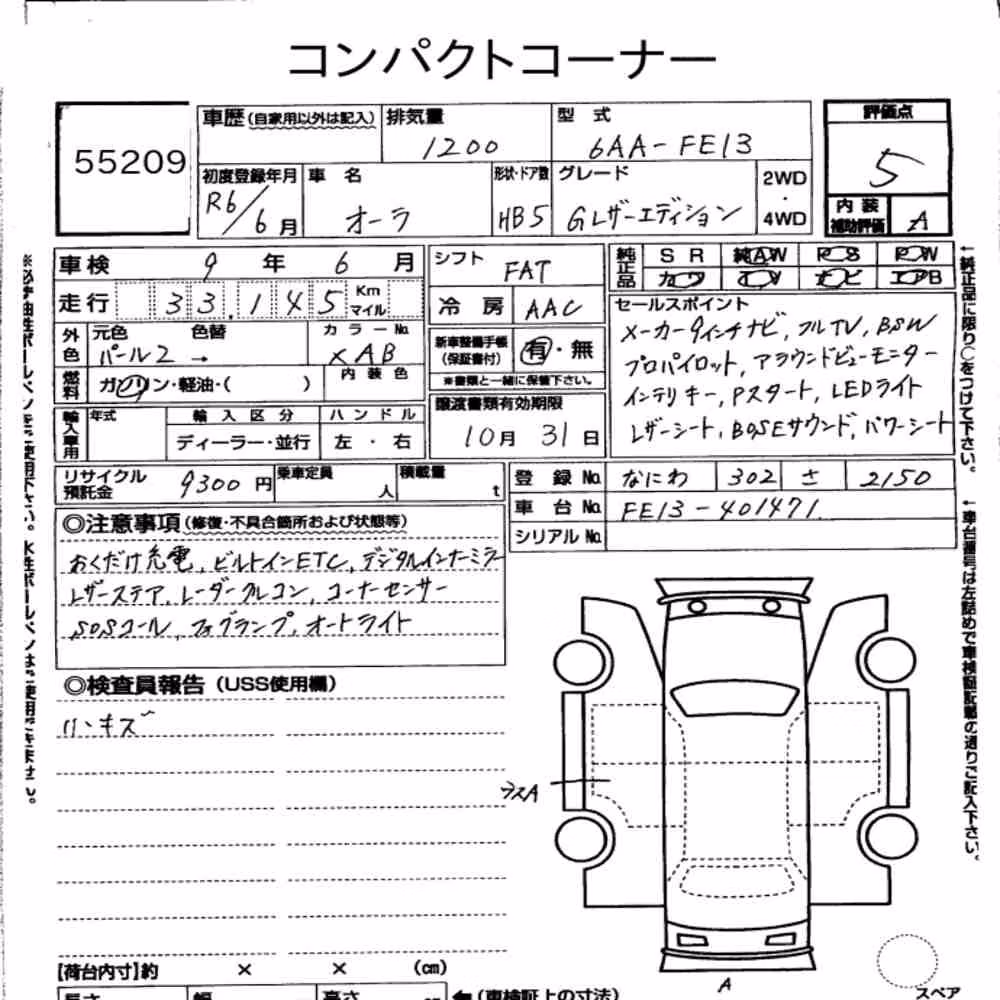 コンパクトコーナー
55209
車歴 (自家用以外は記入)
排気量
1200
型 式
6AA-FE13
評価点
5
内装補助評価
A
初度登録年月
R6/6月
車 名
オーラ
形状・ドア数
HB5
グレード
Gレザーエディション
2WD
・
4WD
車検 9 年 6 月
走行 33,145 Km マイル
シフト
FAT
冷 房
AAC
純正品
S R 純AW P S P W
カワ T V ナビ エアB
外色 元色 色替 カラーNo.
パール2 → XAB
燃料 ガソリン・軽油・( )
内 装 色
新車整備手帳
(保証書付)
有・無
※書類と一緒に保管下さい。
輸入車用
年式
輸 入 区 分
ハ ン ド ル
ディーラー・並行
左 ・ 右
譲渡書類有効期限
10月 31日
セールスポイント
メーカー9インチナビ, フルTV, BSW
プロパイロット, アラウンドビューモニター
インテリキー, Pスタート, LEDライト
レザーシート, BOSEサウンド, パワーシート
リサイクル預託金 9300円
乗車定員 人
積載量 t
登 録 No. なにわ 302 さ 2150
車 台 No. FE13-401471
シリアル No.
◎注意事項 (修復・不具合箇所および状態等)
おくだけ充電, ビルトインETC, デジタルインナーミラー
レザーステア, レーダークルコン, コーナーセンサー
SOSコール, フォグランプ, オートライト
◎検査員報告 (USS使用欄)
小キズ
A
A
スペア
【荷台内寸】約 × × (cm)
長さ 幅 高さ cm
←(車検証上の寸法)
※必ず油性ボールペンをご使用下さい。水性ボールペンはご使用できません。
←純正品に限り○をつけて下さい。
←車台番号は左詰めで車検証記載の通りご記入下さい。